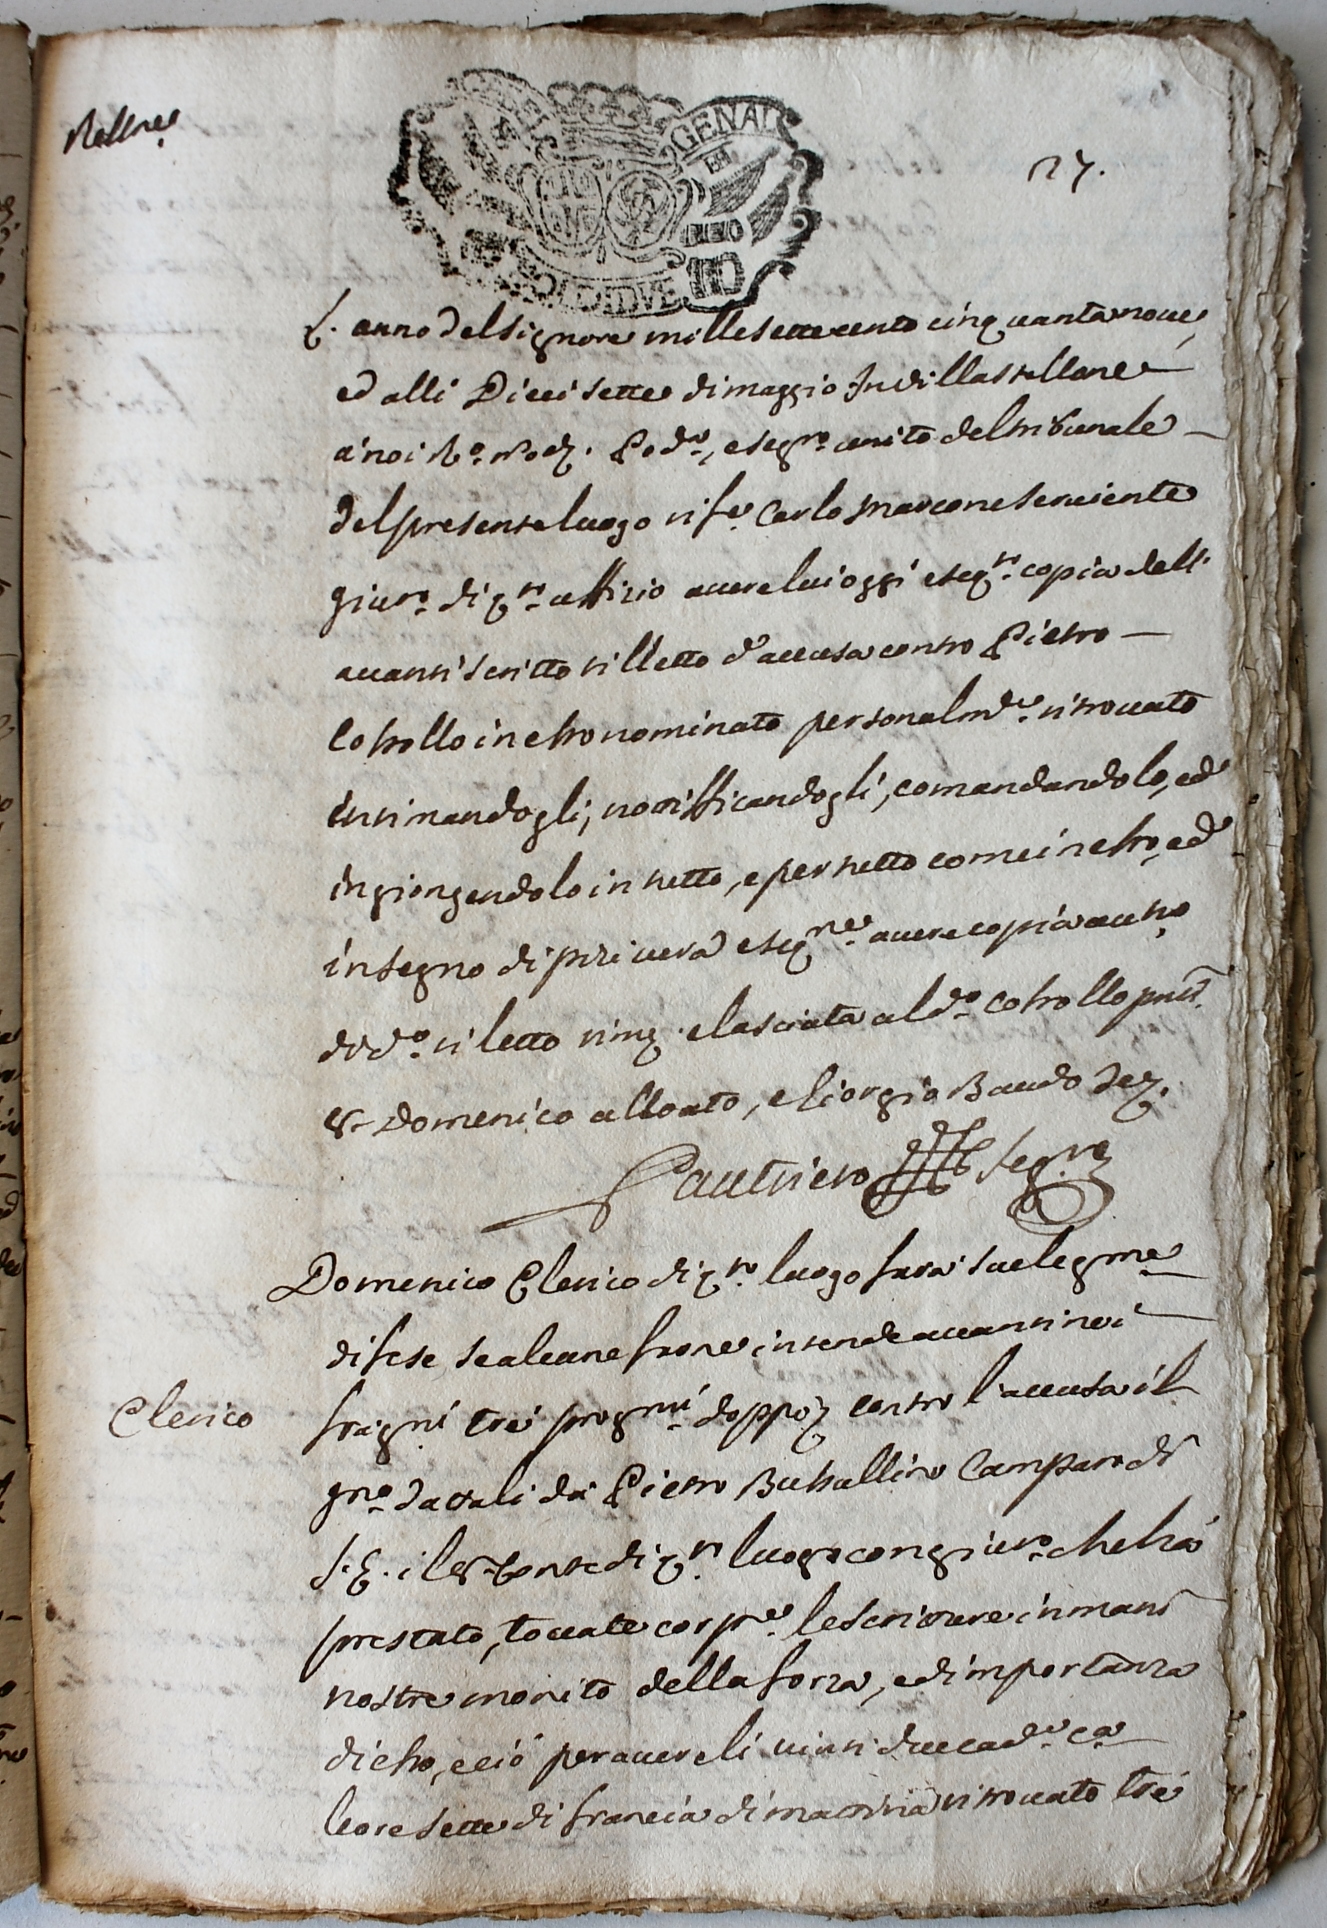 Rellne
GENAI
27.
L'anno del Signore mille settecento cinquantanoue,
ed alli Diecisette di maggio In villastellone
a noi Podo, e segro unito del tribunale
del presente luogo rifeo Carlo Marcone seruiente
giuro di qto uffizio auere lui oggi esegto copia dell'
auanti scritto biglietto d'accusa contro Pietro
Cotrollo in esso nominato personalmte ritrouato
intimandogli, notifficandogli, comandandolo, ed
ingiongendolo in tutto, e per tutto come in esso, ed
in segno di piu vera esegne auere copia auto
di do biletto rimq. e lasciata al do Cotrollo pnti
Sr Domenico alloato, e Giorgio Baudo Tez.
Gautiero Segro
Domenico Clerico di qto luogo farà sue legme
difese se alcune farne intende auanti noi
Clerico
fra gni trei progmi doppo contro l'accusa il
gno dattali da Pietro Butrallino Camparo di
S. E. il Sr Conte di qto luogo con giuro che há
prestato, toccate corpe le Scritture in mani
nostre monito della forza, ed importanza
di esso, e ció per auerli uinti due cade ca
le ore sette di francia di mattina ritrouato tré